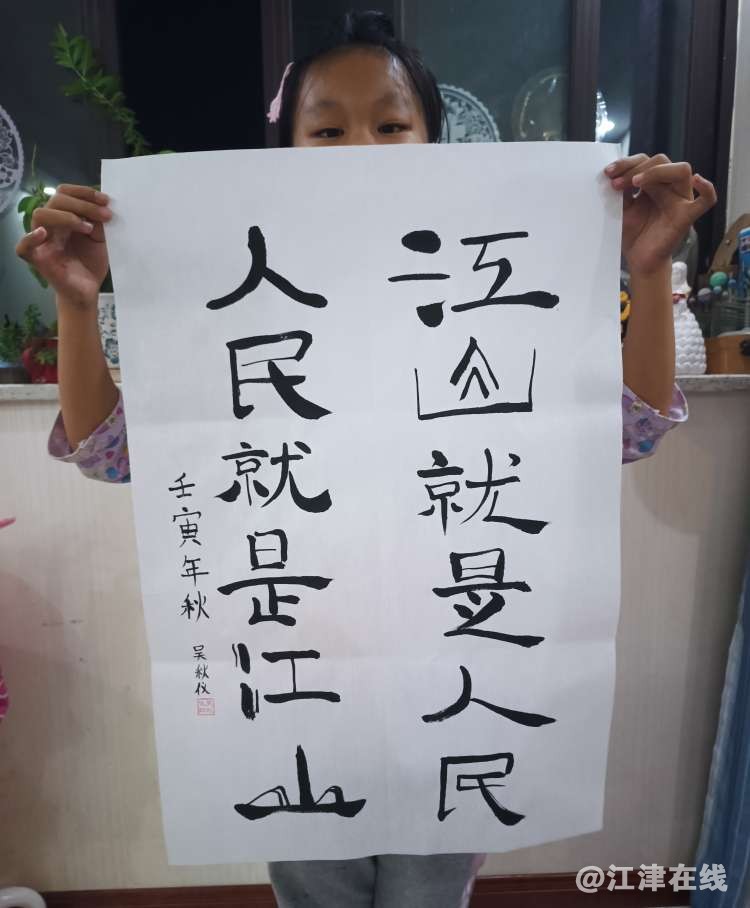 江山就是人民
人民就是江山
壬寅年秋 吴秋仪
@江津在线